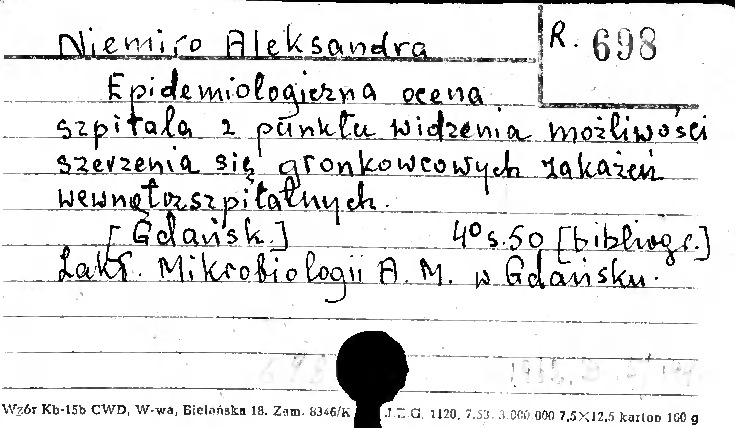 Niemiro Aleksandra
R. 698
Epidemiologiczna ocena
szpitala z punktu widzenia możliwości
szerzenia się gronkowcowych zakażeń
wewnątrzszpitalnych.
[Gdańsk.] 4° s. 50 [bibliogr.]
Zakł. Mikrobiologii A. M. w Gdańsku.
Wzór Kb-15b CWD, W-wa, Bielańska 18. Zam. 8346/K J.Z.G. 1120, 7.53. 3.000 000 7,5×12,5 karton 160 g